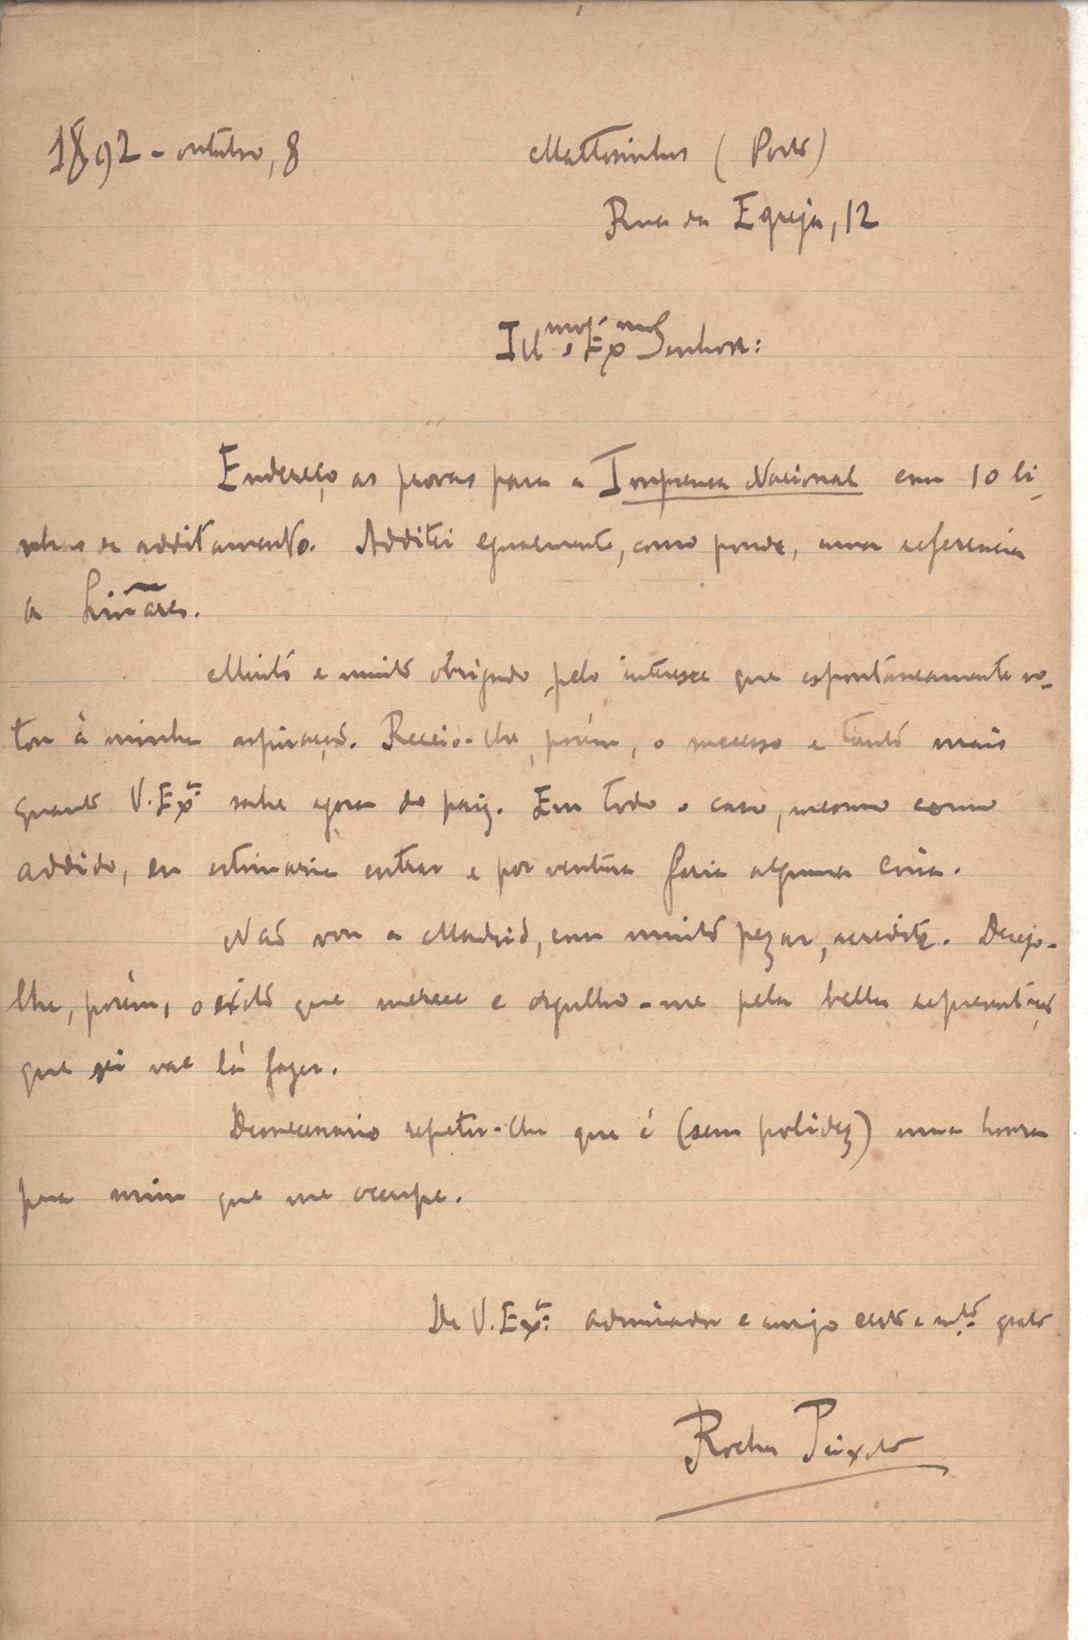 1892 - outubro, 8
Mattosinhos (Porto)
Rua da Egreja, 12
Ill.mo e Ex.mo Senhor:
Endereço as provas para a Imprensa Nacional com 10 li-
nhas de additamento. Additei egualmente, como poude, uma referencia
a Liñares.
Muito e muito obrigado pelo interesse que espontaneamente vo-
tou á minha aspiração. Receio-lhe, porém, o successo e tanto mais
quanto V. Ex.ª sahe agora do paiz. Em todo o caso, mesmo como
addido, eu estimaria entrar e por ventura faria alguma coisa.
Não vou a Madrid, com muito pezar, acredite. Desejo-
lhe, porém, o exito que merece e orgulho-me pela bella representação
que sei vae lá fazer.
Desnecessario repetir-lhe que é (sem polidez) uma honra
para mim que me occupe.
De V. Ex.ª admirador e amigo certo e m.to grato
Rocha Peixoto